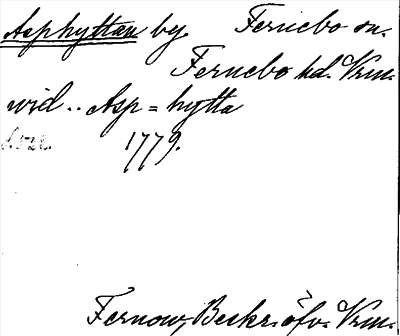 Asphyttan by. Fernebo sn.
Fernebo hd. Vrm.
vid .. Asp = hytta
s. 528. 1779.
Fernow, Beskr. öfv. Vrm.